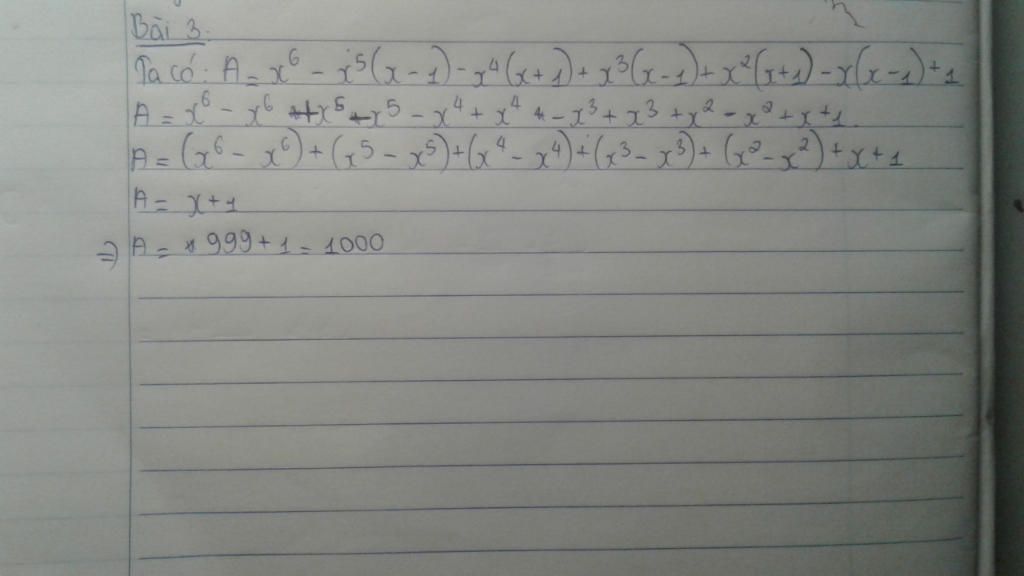 Bài 3:
Ta có: A = x⁶ - x⁵(x-1) - x⁴(x+1) + x³(x-1) + x²(x+1) - x(x-1) + 1
A = x⁶ - x⁶ + x⁵ - x⁵ - x⁴ + x⁴ - x³ + x³ + x² - x² + x + 1.
A = (x⁶ - x⁶) + (x⁵ - x⁵) + (x⁴ - x⁴) + (x³ - x³) + (x² - x²) + x + 1
A = x + 1
⇒ A = 999 + 1 = 1000